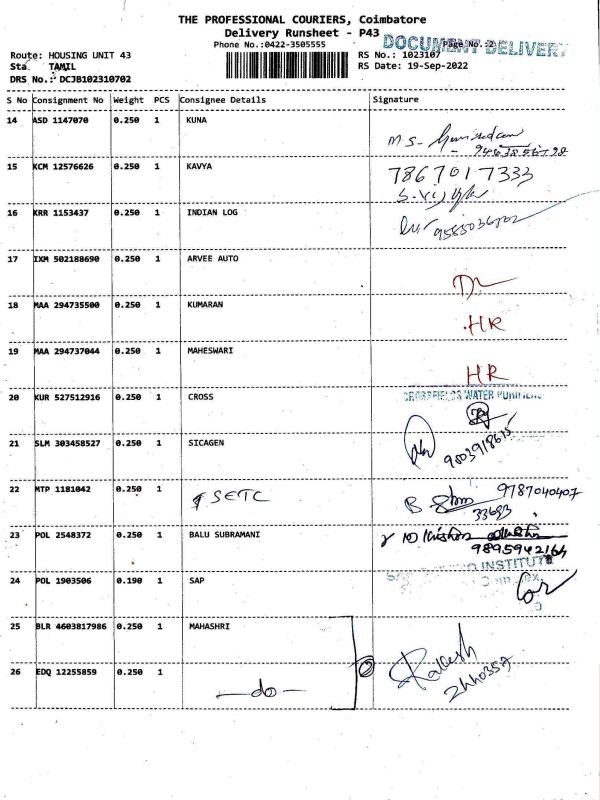 THE PROFESSIONAL COURIERS, Coimbatore
Delivery Runsheet - P43
Phone No.:0422-3505555
DOCUMENT DELIVERY
Page No.:2
Route: HOUSING UNIT 43
RS No.: 1023107
Sta. TAMIL
RS Date: 19-Sep-2022
DRS No.: DCJB102310702
S No Consignment No Weight PCS Consignee Details Signature
14 ASD 1147070 0.250 1 KUNA
M S-
15 KCM 12576626 0.250 1 KAVYA
7867017333
16 KRR 1153437 0.250 1 INDIAN LOG
17 IXM 502188690 0.250 1 ARVEE AUTO
18 MAA 294735500 0.250 1 KUMARAN
HR
19 MAA 294737044 0.250 1 MAHESWARI
HR
20 KUR 527512916 0.250 1 CROSS
WATER
21 SLM 303458527 0.250 1 SICAGEN
9803918615
22 MTP 1181042 0.250 1 SETC
9787040407
33693
23 POL 2548372 0.250 1 BALU SUBRAMANI
9895942164
24 POL 1903506 0.190 1 SAP
INSTITUTE
25 BLR 4603817986 0.250 1 MAHASHRI
Rakesh
26 EDQ 12255859 0.250 1 —do—